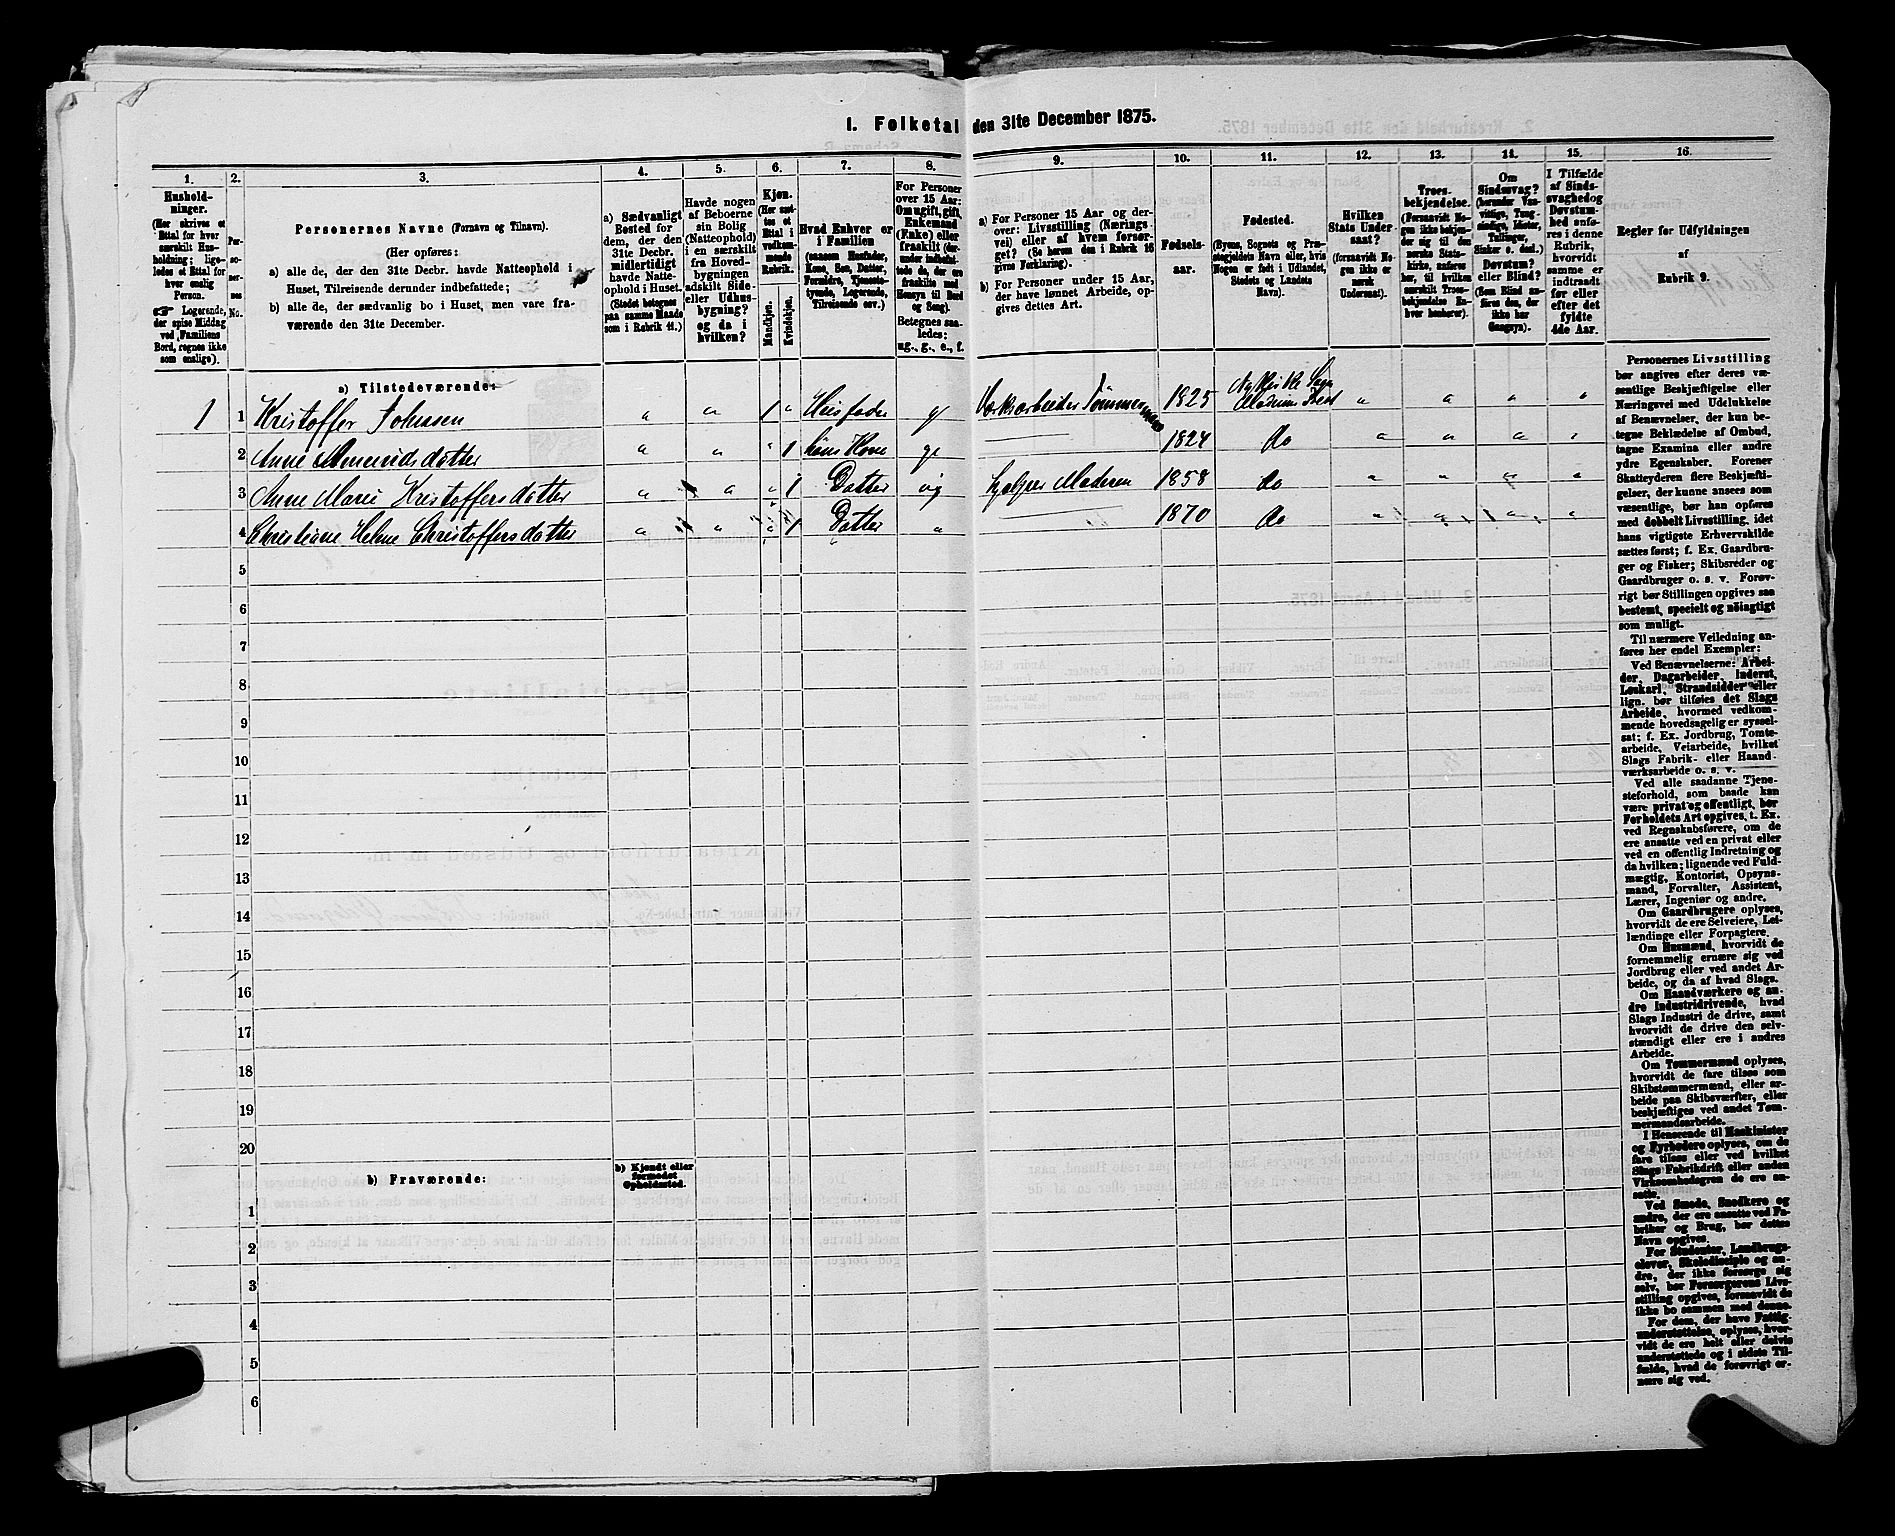 1. Folketal den 31te December 1875.
1.
2.
3.
4.
5.
6.
7.
8.
9.
10.
11.
12.
13.
14.
15.
16.
Hushold-
ninger.
(Her skrives et
Ettal for hver
særskilt Hus-
holdning; lige-
ledes et Ettal for
hver enslig
Person.
☞ Logerende,
der spise Middag
ved Familiens
Bord, regnes ikke
som enslige).
Per-
so-
ner-
nes
No.
Personernes Navne (Fornavn og Tilnavn).
(Her opføres:
a) alle de, der den 31te Decbr. havde Natteophold i
Huset, Tilreisende derunder indbefattede;
b) alle de, der sædvanlig bo i Huset, men vare fra-
værende den 31te December.
a) Sædvanligt
Bosted for
dem, der den
31te Decbr.
midlertidigt
havde Natte-
ophold i Huset.
(Stedet betegnes
paa samme Maade
som i Rubrik 11.)
Havde nogen
af Beboerne
sin Bolig
(Natteophold)
i en særskilt
fra Hoved-
bygningen
adskilt Side-
eller Udhus-
bygning?
og da i
hvilken?
Kjøn.
(Her sæt-
tes et
Ettal i
vedkom-
mende
Rubrik.
Mandkjøn.
Kvindekjøn.
Hvad Enhver er
i Familien
(saasom Husfader,
Kone, Søn, Datter,
Forældre, Tjeneste-
tyende, Logerende,
Tilreisende osv.)
For Personer
over 15 Aar:
Om ugift, gift,
Enkemand
(Enke) eller
fraskilt (der-
under indbefat-
tede de, der ere
fraskilte med
Hensyn til Bord
og Seng).
Betegnes saa-
ledes:
ug., g., e., f.
a) For Personer 15 Aar og der-
over: Livsstilling (Nærings-
vei) eller af hvem forsør-
get? (Se herom den i Rubrik 16
givne Forklaring).
b) For Personer under 15 Aar,
der have lønnet Arbeide, op-
gives dettes Art.
Fødsels-
aar.
Fødested.
(Byens, Sognets og Præ-
stegjeldets Navn eller, hvis
Nogen er født i Udlandet,
Stedets og Landets
Navn).
Hvilken
Stats Under-
saat?
(forsaavidt No-
gen ikke er
norsk
Undersaat).
Troes-
bekjendelse.
(Forsaavidt No-
gen ikke bekjen-
der sig til den
norske Stats-
kirke, anføres
her, til hvilken
særskilt Troes-
bekjendelse En-
hver henhører).
Om
Sindssvag?
(herunder Van-
vittige, Tung-
sindige, Idioter,
Tullinger,
Sinker o. desl.)
Døvstum?
eller Blind?
(Som Blind an-
føres den, der
ikke har
Gangsyn).
I Tilfælde
af Sinds-
svaghed og
Døvstum-
hed anfø-
res i denne
Rubrik,
hvorvidt
samme er
indtraadt
før eller
efter det
fyldte
4de Aar.
Regler for Udfyldningen
af
Rubrik 9.
a) Tilstedeværende:
1 1 Kristoffer Johnsen " " 1 " Husfader g Værksarbeider Tømmermand 1825 Nykirke Sogn
Modums Præst " " " "
2 Anne Amundsdatter " " " 1 hans Kone g 1824 do " " " "
3 Anne Marie Kristoffersdatter " " " 1 Datter ug hjelper Moderen 1858 do " " " "
4 Christiane Helene Christoffersdatter " " " 1 Datter " 1870 do " " " "
5
6
7
8
9
10
11
12
13
14
15
16
17
18
19
20
b) Fraværende:
b) Kjendt eller
formodet
Opholdssted.
1
2
3
4
5
6
Personernes Livsstilling
bør angives efter deres væ-
sentlige Beskjæftigelse eller
Næringsvei med Udelukkelse
af Benævnelser, der kun be-
tegne Beklædelse af Ombud,
tagne Examina eller andre
ydre Egenskaber. Forener
Skatteyderen flere Beskjæfti-
gelser, der kunne ansees som
væsentlige, bør han opføres
med dobbelt Livsstilling, idet
hans vigtigste Erhvervskilde
sættes først; f. Ex. Gaardbru-
ger og Fisker; Skibsreder og
Gaardbruger o. s. v. Forøv-
rigt bør Stillingen opgives saa
bestemt, specielt og nøiagtigt
som muligt.
Til nærmere Veiledning an-
føres her endel Exempler:
Ved Benævnelserne: Arbei-
der, Dagarbeider, Inderst,
Løskarl, Strandsidder eller
lign. bør tilføies det Slags
Arbeide, hvormed vedkom-
mende hovedsagelig er syssel-
sat; f. Ex. Jordbrug, Tomte-
arbeide, Veiarbeide, hvilket
Slags Fabrik- eller Haand-
værksarbeide o. s. v.
Ved alle saadanne Tjene-
steforhold, som baade kan
være privat og offentligt, bør
Forholdets Art opgives, t. Ex.
ved Regnskabsførere, om de
ere ansatte ved en privat eller
ved en offentlig Indretning og
da hvilken; lignende ved Fuld-
mægtig, Kontorist, Opsyns-
mand, Forvalter, Assistent,
Lærer, Ingeniør og andre.
Om Gaardbrugere oplyses,
hvorvidt de ere Selveiere, Lei-
lændinge eller Forpagtere.
Om Husmænd, hvorvidt de
fornemmelig ernære sig ved
Jordbrug eller ved andet Ar-
beide, og da af hvad Slags.
Om Haandværkere og an-
dre Industridrivende, hvad
Slags Industri de drive, samt
hvorvidt de drive den selv-
stændigt eller ere i andres
Arbeide.
Om Tømmermænd oplyses,
hvorvidt de fare tilsøs som
Skibstømmermænd, eller ar-
beide paa Skibsværfter, eller
beskjæftiges ved andet Tøm-
mermandsarbeide.
I Henseende til Maskinister
og Fyrbødere oplyses, om de
fare tilsøs eller ved hvilket
Slags Fabrikdrift eller anden
Virksomhedsgren de ere an-
satte.
Ved Smede, Snedkere og
andre, der ere ansatte ved Fa-
briker og Brug, bør dettes
Navn opgives.
For Studenter, Landbrugs-
elever, Skoledisciple og an-
dre, der ikke forsørge sig
selv, bør Forsørgerens Livs-
stilling opgives, forsaavidt de
ikke bo sammen med denne.
For dem, der have Fattig-
understøttelse, oplyses, hvor-
vidt de ere helt eller delvis
understøttede og i sidste Til-
fælde, hvad de forøvrigt er-
nære sig ved.